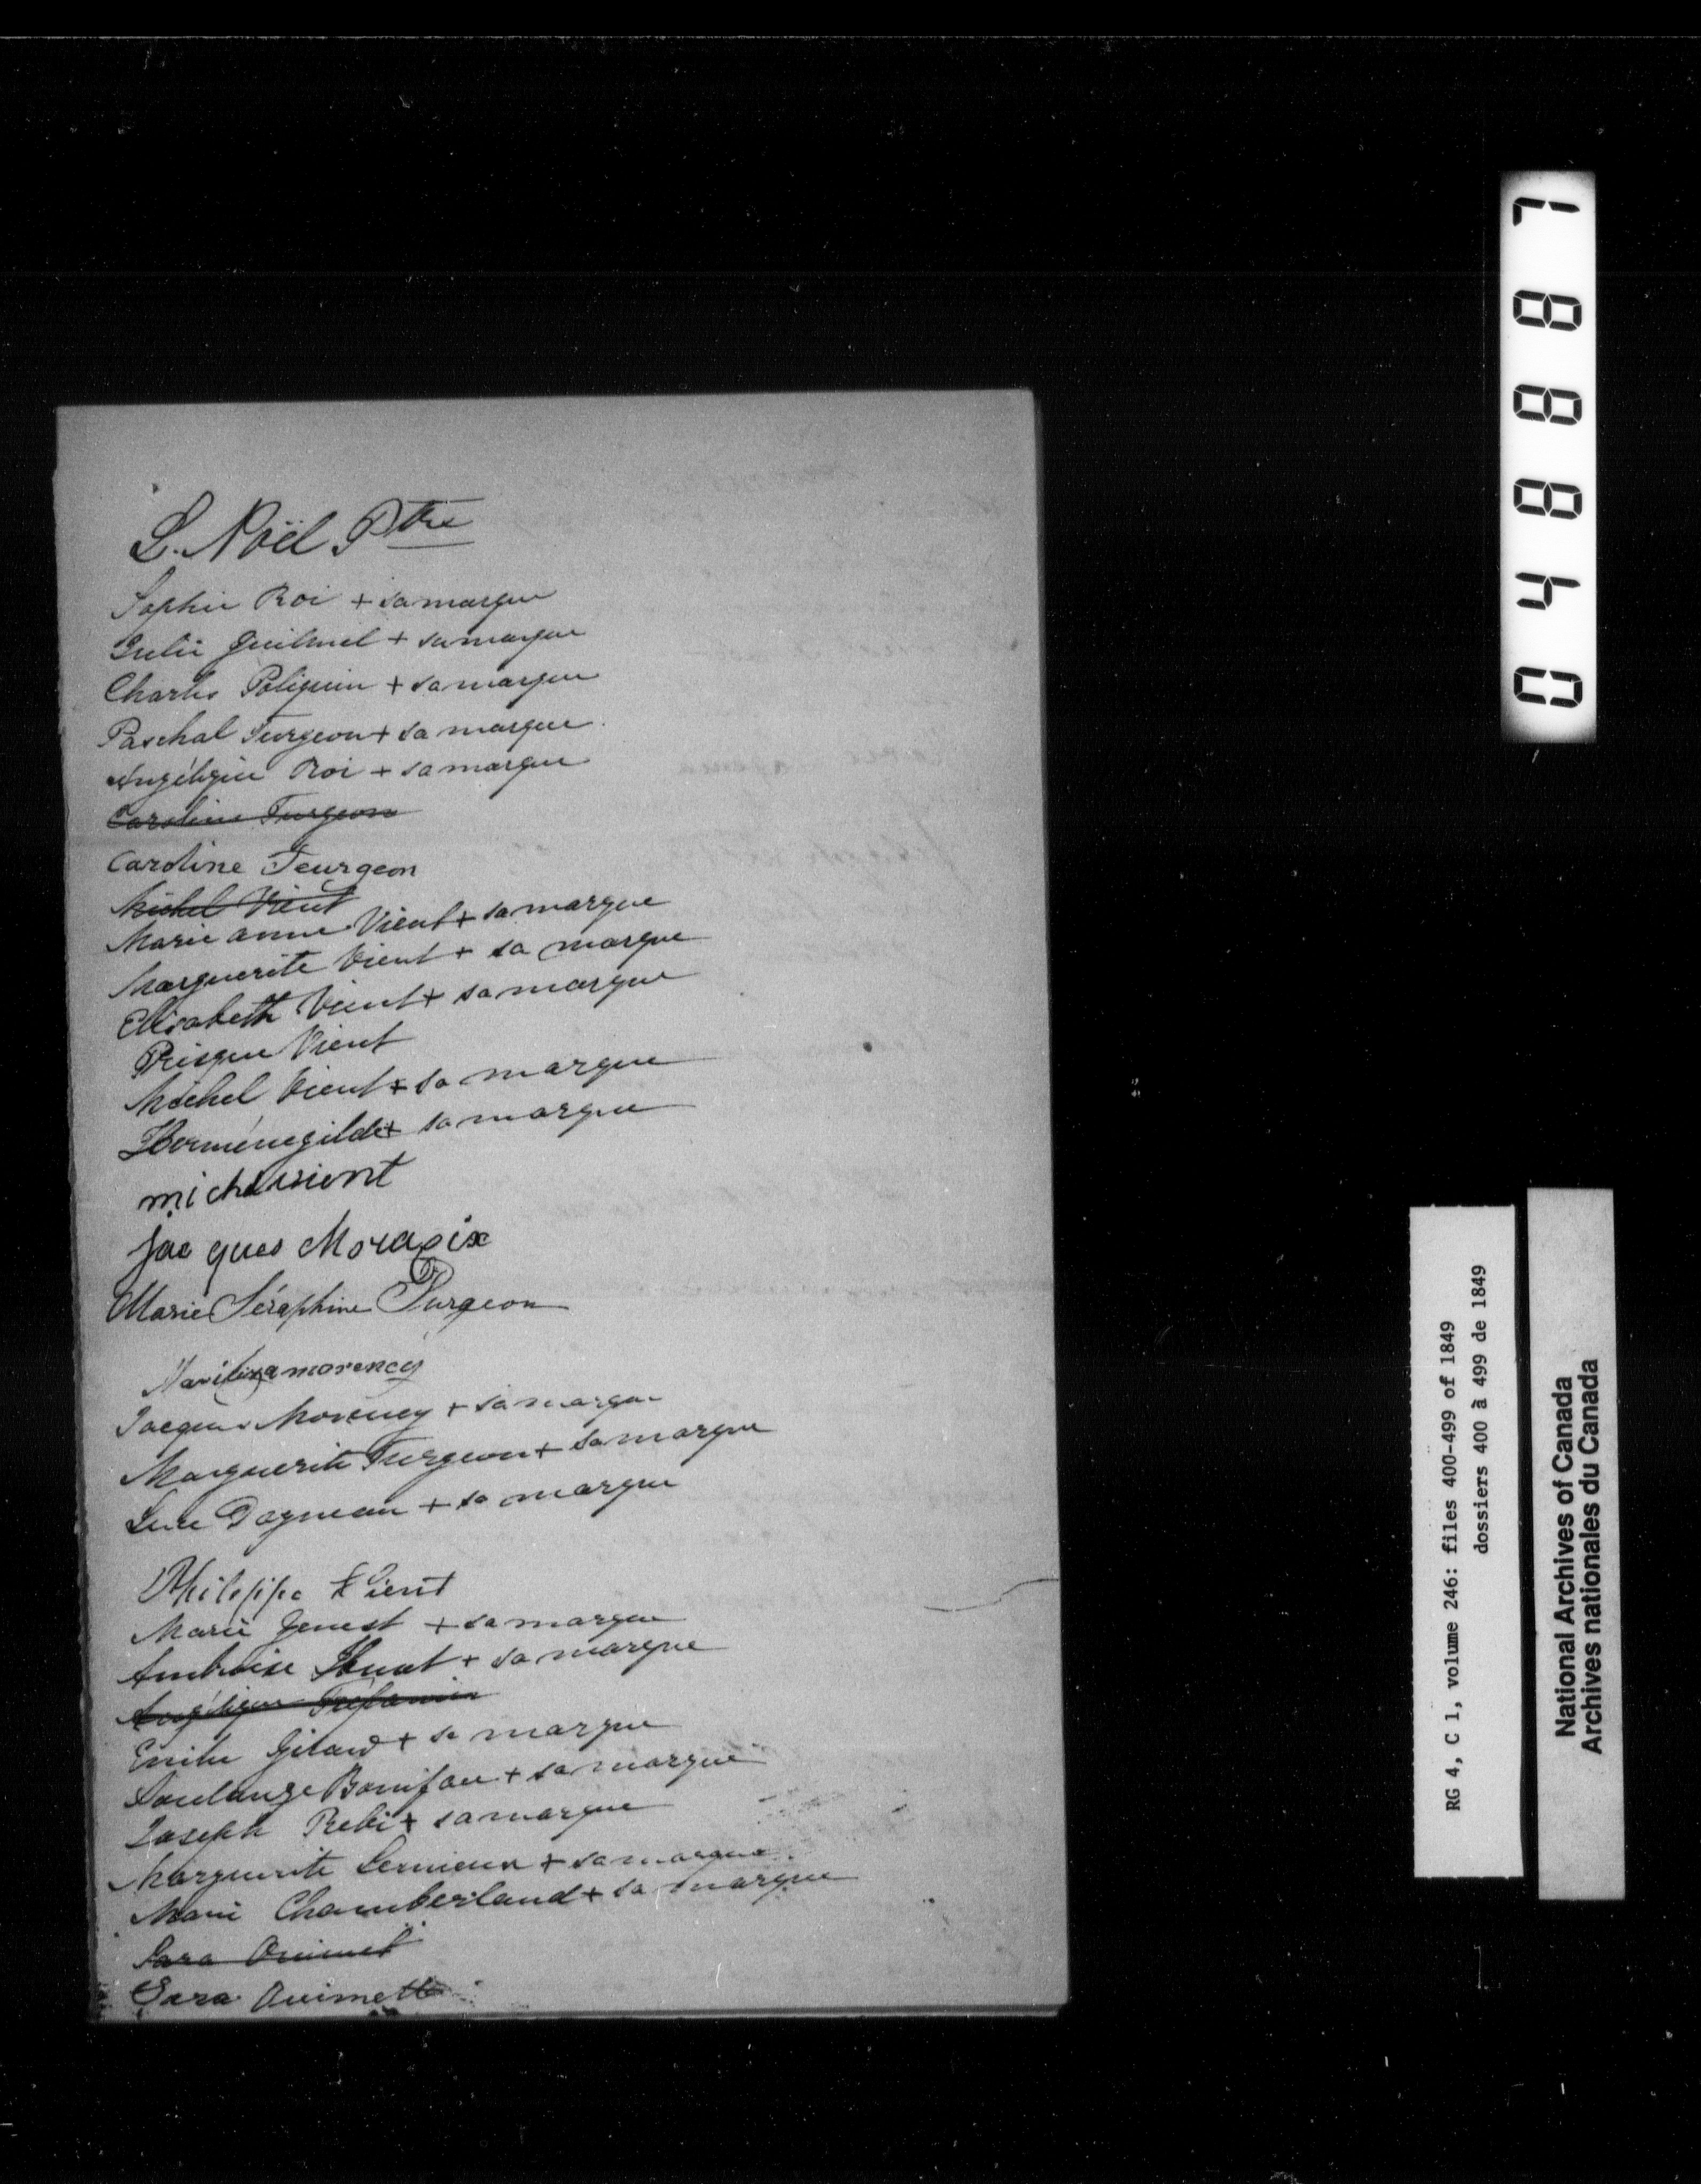 L. Noël Ptre
Sophie Roi + sa marque
Julie Guilmet + sa marque
Charles Poliquin + sa marque
Paschal Turgeon + sa marque
Angélique Roi + sa marque
Caroline Turgeon
Caroline Teurgeon
Michel Vient
Marie anne Vient + sa marque
Marguerite Vient + sa marque
Elisabeth Vient + sa marque
Prisque Vient
Michel Vient + sa marque
Herménegilde + sa marque
michel vient
jacques
Marie Séraphine Turgeon
morency
Jacques Morency + sa marque
Marguerite Turgeon + sa marque
Luce Dagneau + sa marque
Philippe Vient
Marie Genest + sa marque
Ambroise Huot + sa marque
Angélique Trépanier
Emilie + sa marque
Soulange Bonifau + sa marque
Joseph + sa marque
Marguerite Lemieux + sa marque
Marie Chamberland + sa marque
Sara Ouimet
Sara Ouimette
048887
RG 4, C 1, volume 246: files 400-499 of 1849
dossiers 400 à 499 de 1849
National Archives of Canada
Archives nationales du Canada